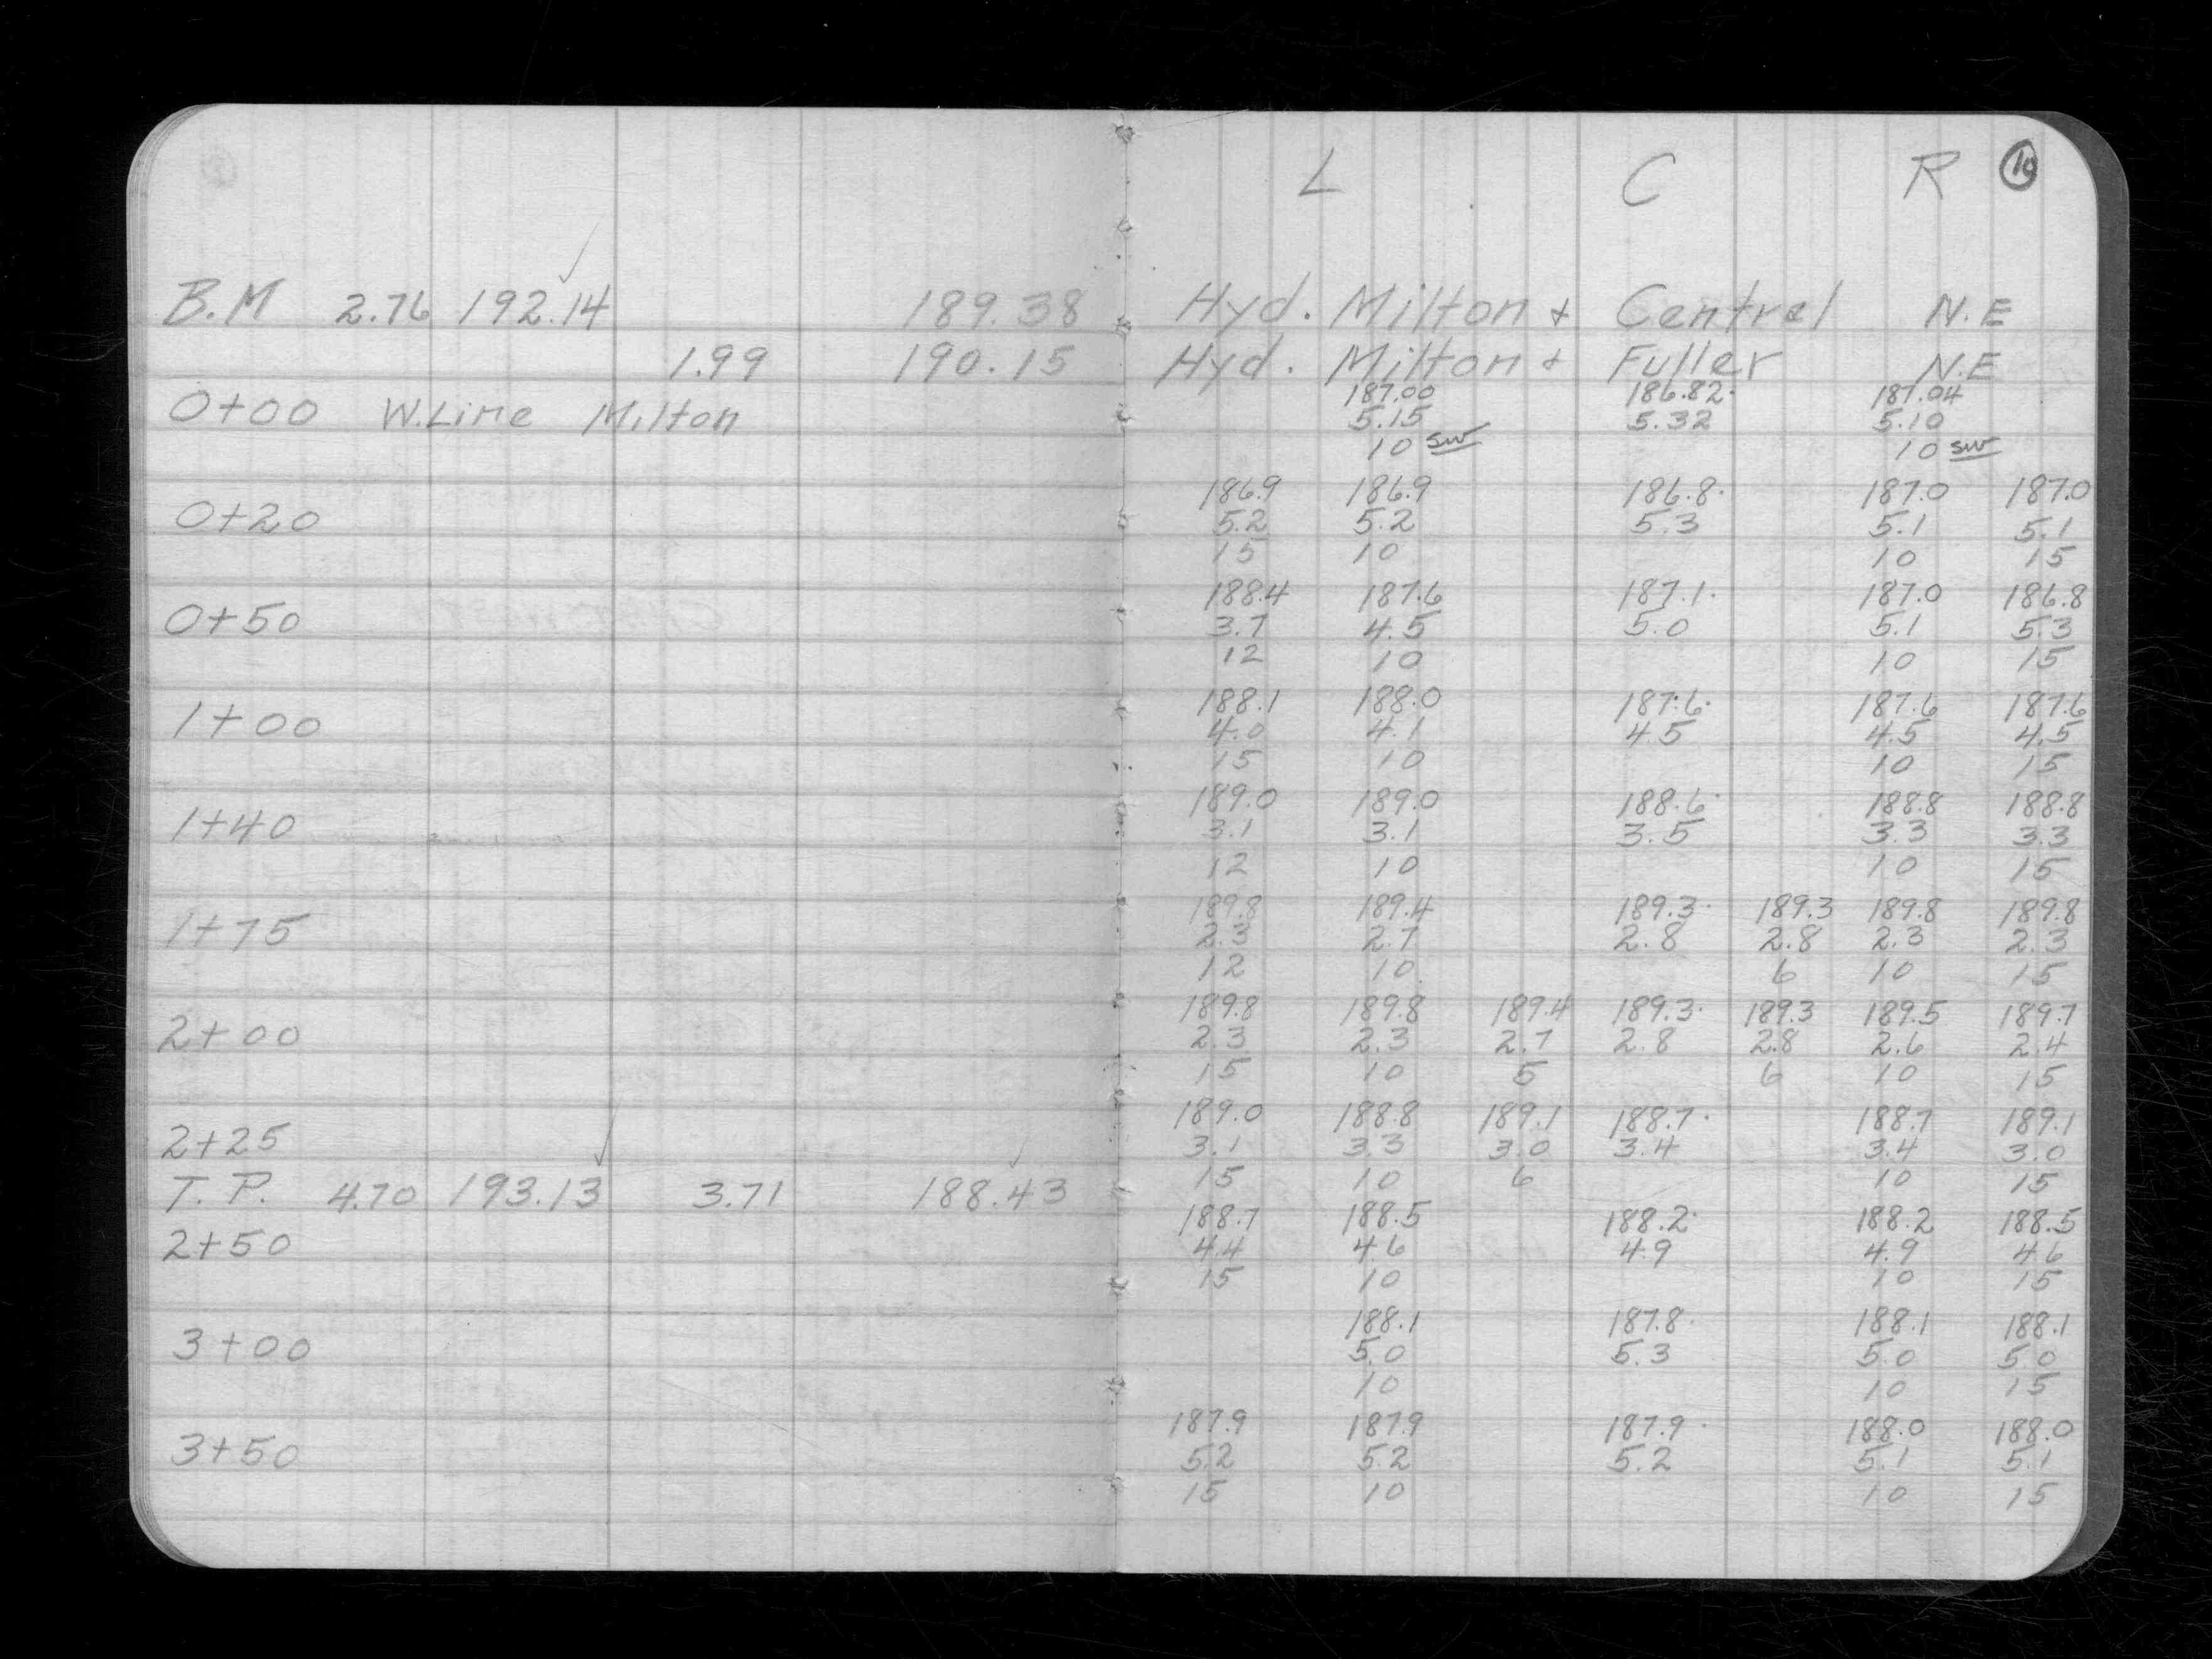 L C R 10
B.M 2.76 192.14 189.38 Hyd. Milton + Central N.E
1.99 190.15 Hyd. Milton + Fuller N.E
187.00 186.82 187.04
0+00 W.Line Milton 5.15 5.32 5.10
10 sw 10 sw
186.9 186.9 186.8 187.0 187.0
0+20 5.2 5.2 5.3 5.1 5.1
15 10 10 15
188.4 187.6 187.1 187.0 186.8
0+50 3.7 4.5 5.0 5.1 5.3
12 10 10 15
188.1 188.0 187.6 187.6 187.6
1+00 4.0 4.1 4.5 4.5 4.5
15 10 10 15
189.0 189.0 188.6 188.8 188.8
1+40 3.1 3.1 3.5 3.3 3.3
12 10 10 15
189.8 189.4 189.3 189.3 189.8 189.8
1+75 2.3 2.7 2.8 2.8 2.3 2.3
12 10 6 10 15
189.8 189.8 189.4 189.3 189.3 189.5 189.7
2+00 2.3 2.3 2.7 2.8 2.8 2.6 2.4
15 10 5 6 10 15
189.0 188.8 189.1 188.7 188.7 189.1
2+25 3.1 3.3 3.0 3.4 3.4 3.0
15 10 6 10 15
T.P. 4.70 193.13 3.71 188.43
188.7 188.5 188.2 188.2 188.5
2+50 4.4 4.6 4.9 4.9 4.6
15 10 10 15
188.1 187.8 188.1 188.1
3+00 5.0 5.3 5.0 5.0
10 10 15
187.9 187.9 187.9 188.0 188.0
3+50 5.2 5.2 5.2 5.1 5.1
15 10 10 15